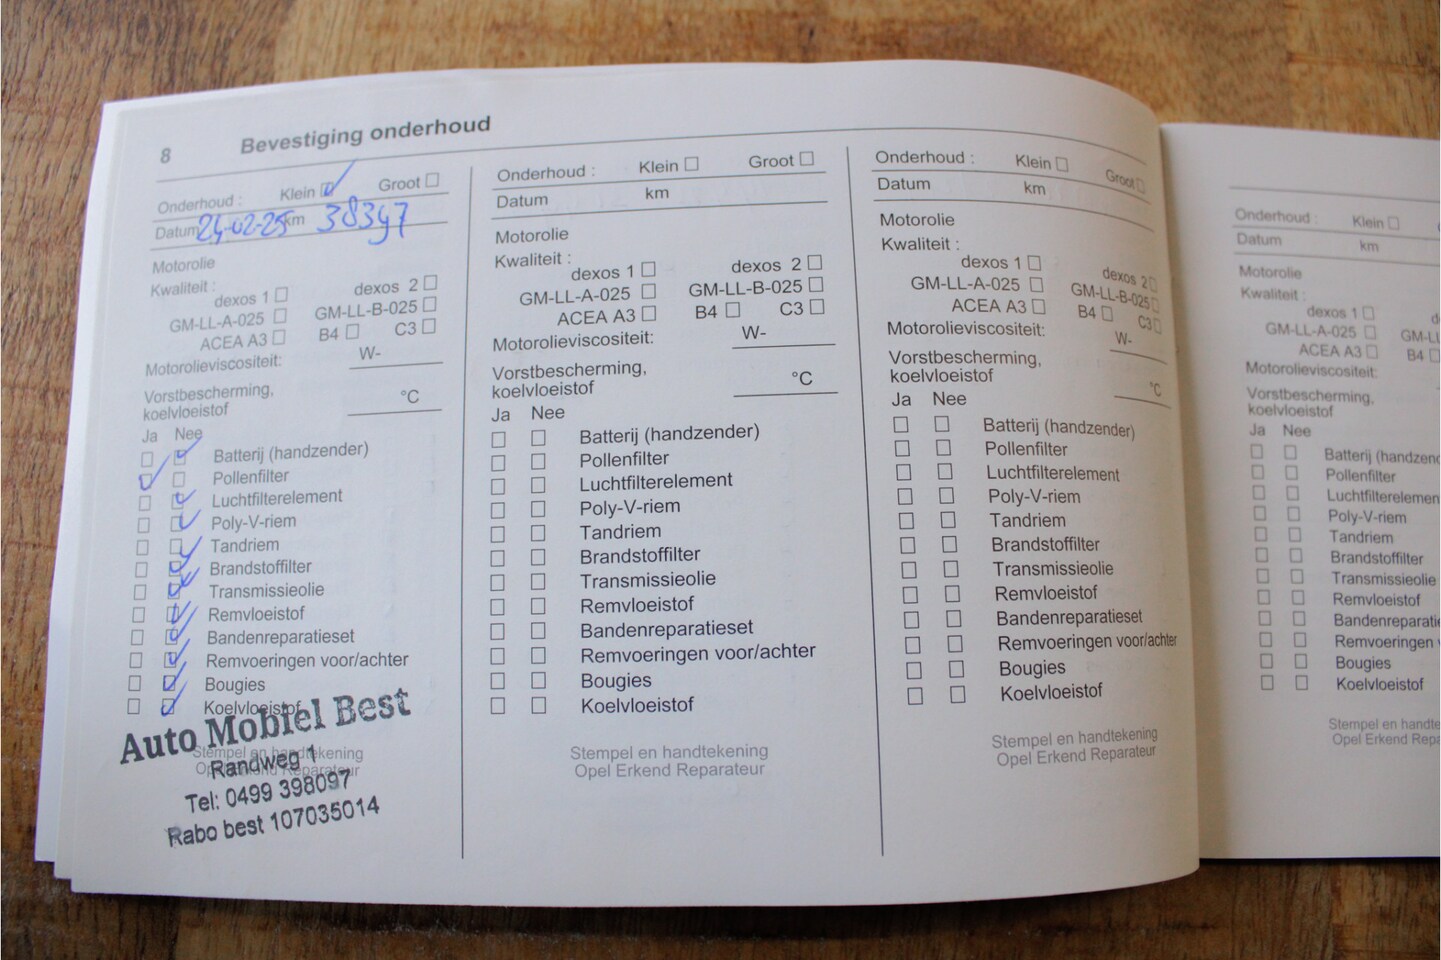 8 Bevestiging onderhoud
Onderhoud : Klein Groot
Datum 24-02-25 km 38397
Motorolie
Kwaliteit :
dexos 1 dexos 2
GM-LL-A-025 GM-LL-B-025
ACEA A3 B4 C3
Motorolieviscositeit: W-
Vorstbescherming,
koelvloeistof °C
Ja Nee
Batterij (handzender)
Pollenfilter
Luchtfilterelement
Poly-V-riem
Tandriem
Brandstoffilter
Transmissieolie
Remvloeistof
Bandenreparatieset
Remvoeringen voor/achter
Bougies
Koelvloeistof
Stempel en handtekening
Opel Erkend Reparateur
Auto Mobiel Best
Randweg 1
Tel: 0499 398097
Rabo best 107035014
Onderhoud : Klein Groot
Datum km
Motorolie
Kwaliteit :
dexos 1 dexos 2
GM-LL-A-025 GM-LL-B-025
ACEA A3 B4 C3
Motorolieviscositeit: W-
Vorstbescherming,
koelvloeistof °C
Ja Nee
Batterij (handzender)
Pollenfilter
Luchtfilterelement
Poly-V-riem
Tandriem
Brandstoffilter
Transmissieolie
Remvloeistof
Bandenreparatieset
Remvoeringen voor/achter
Bougies
Koelvloeistof
Stempel en handtekening
Opel Erkend Reparateur
Onderhoud : Klein Groot
Datum km
Motorolie
Kwaliteit :
dexos 1 dexos 2
GM-LL-A-025 GM-LL-B-025
ACEA A3 B4 C3
Motorolieviscositeit: W-
Vorstbescherming,
koelvloeistof °C
Ja Nee
Batterij (handzender)
Pollenfilter
Luchtfilterelement
Poly-V-riem
Tandriem
Brandstoffilter
Transmissieolie
Remvloeistof
Bandenreparatieset
Remvoeringen voor/achter
Bougies
Koelvloeistof
Stempel en handtekening
Opel Erkend Reparateur
Onderhoud : Klein
Datum km
Motorolie
Kwaliteit :
dexos 1
GM-LL-A-025 GM-LL
ACEA A3 B4
Motorolieviscositeit:
Vorstbescherming,
koelvloeistof
Ja Nee
Batterij (handzend
Pollenfilter
Luchtfilterelemen
Poly-V-riem
Tandriem
Brandstoffilter
Transmissieolie
Remvloeistof
Bandenreparati
Remvoeringen v
Bougies
Koelvloeistof
Stempel en handte
Opel Erkend Repara